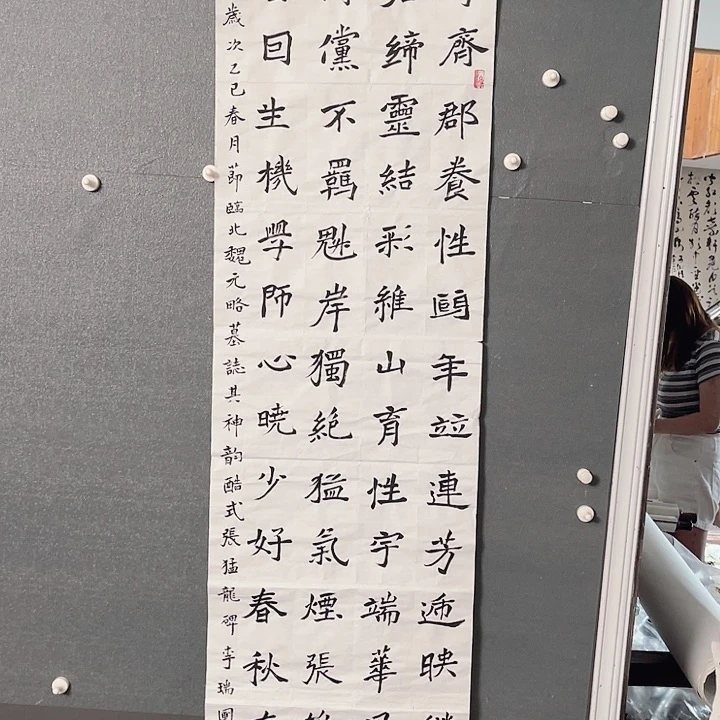 齊郡養性年竝連芳遞映
締靈結彩維山育性宇端華
儻不羈魁岸獨絶猛氣煙張
回生機學師心曉少好春秋
歲次乙巳春月莭臨北魏元略墓誌其神韵酷式張猛龍碑李瑞